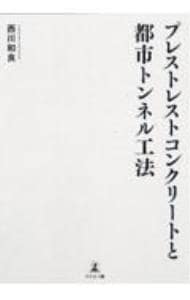 プレストレストコンクリートと
都市トンネル工法
西川和良